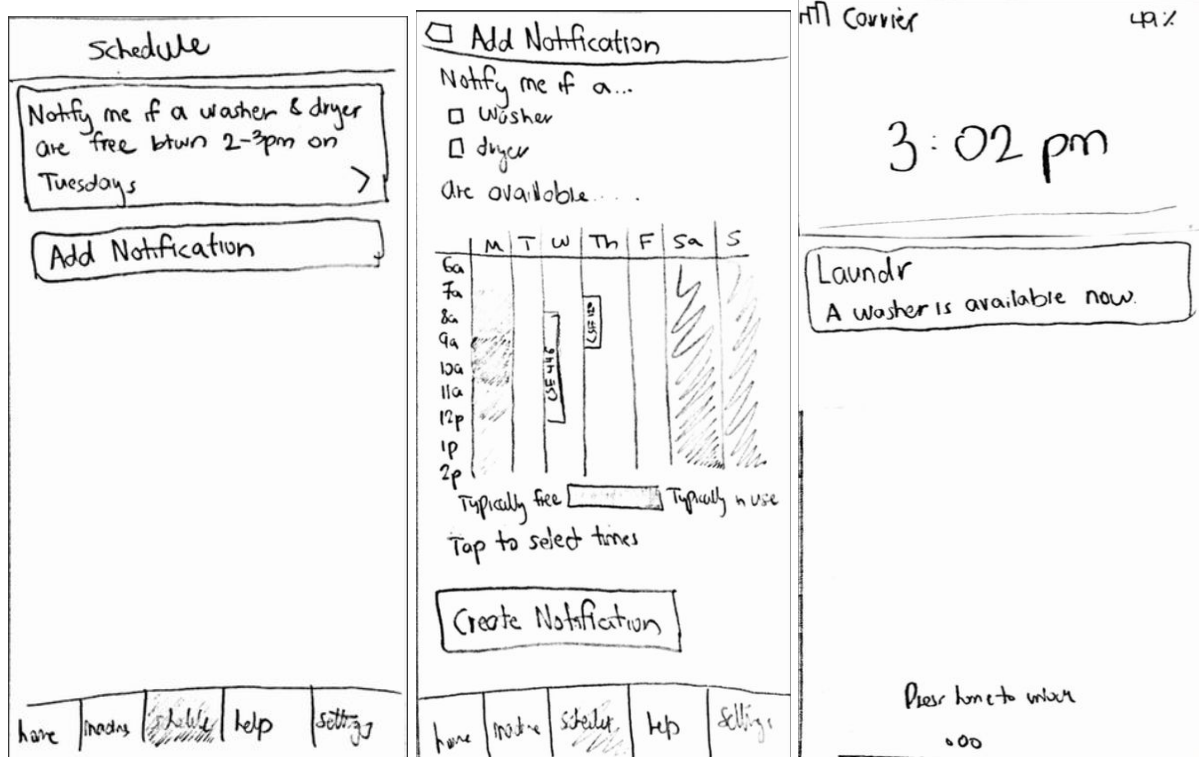 Schedule
Notify me if a washer & dryer
are free btwn 2-3pm on
Tuesdays >
Add Notification
home
schedule
help
settings
Add Notification
Notify me if a...
Washer
dryer
are available....
M T W Th F Sa S
6a
7a
8a
9a
10a
11a
12p
1p
2p
CSE 440
CSE
Typically free
Typically in use
Tap to select times
Create Notification
home
help
Settings
Carrier
49%
3:02 pm
Laundr
A washer is available now.
Press home to unlock